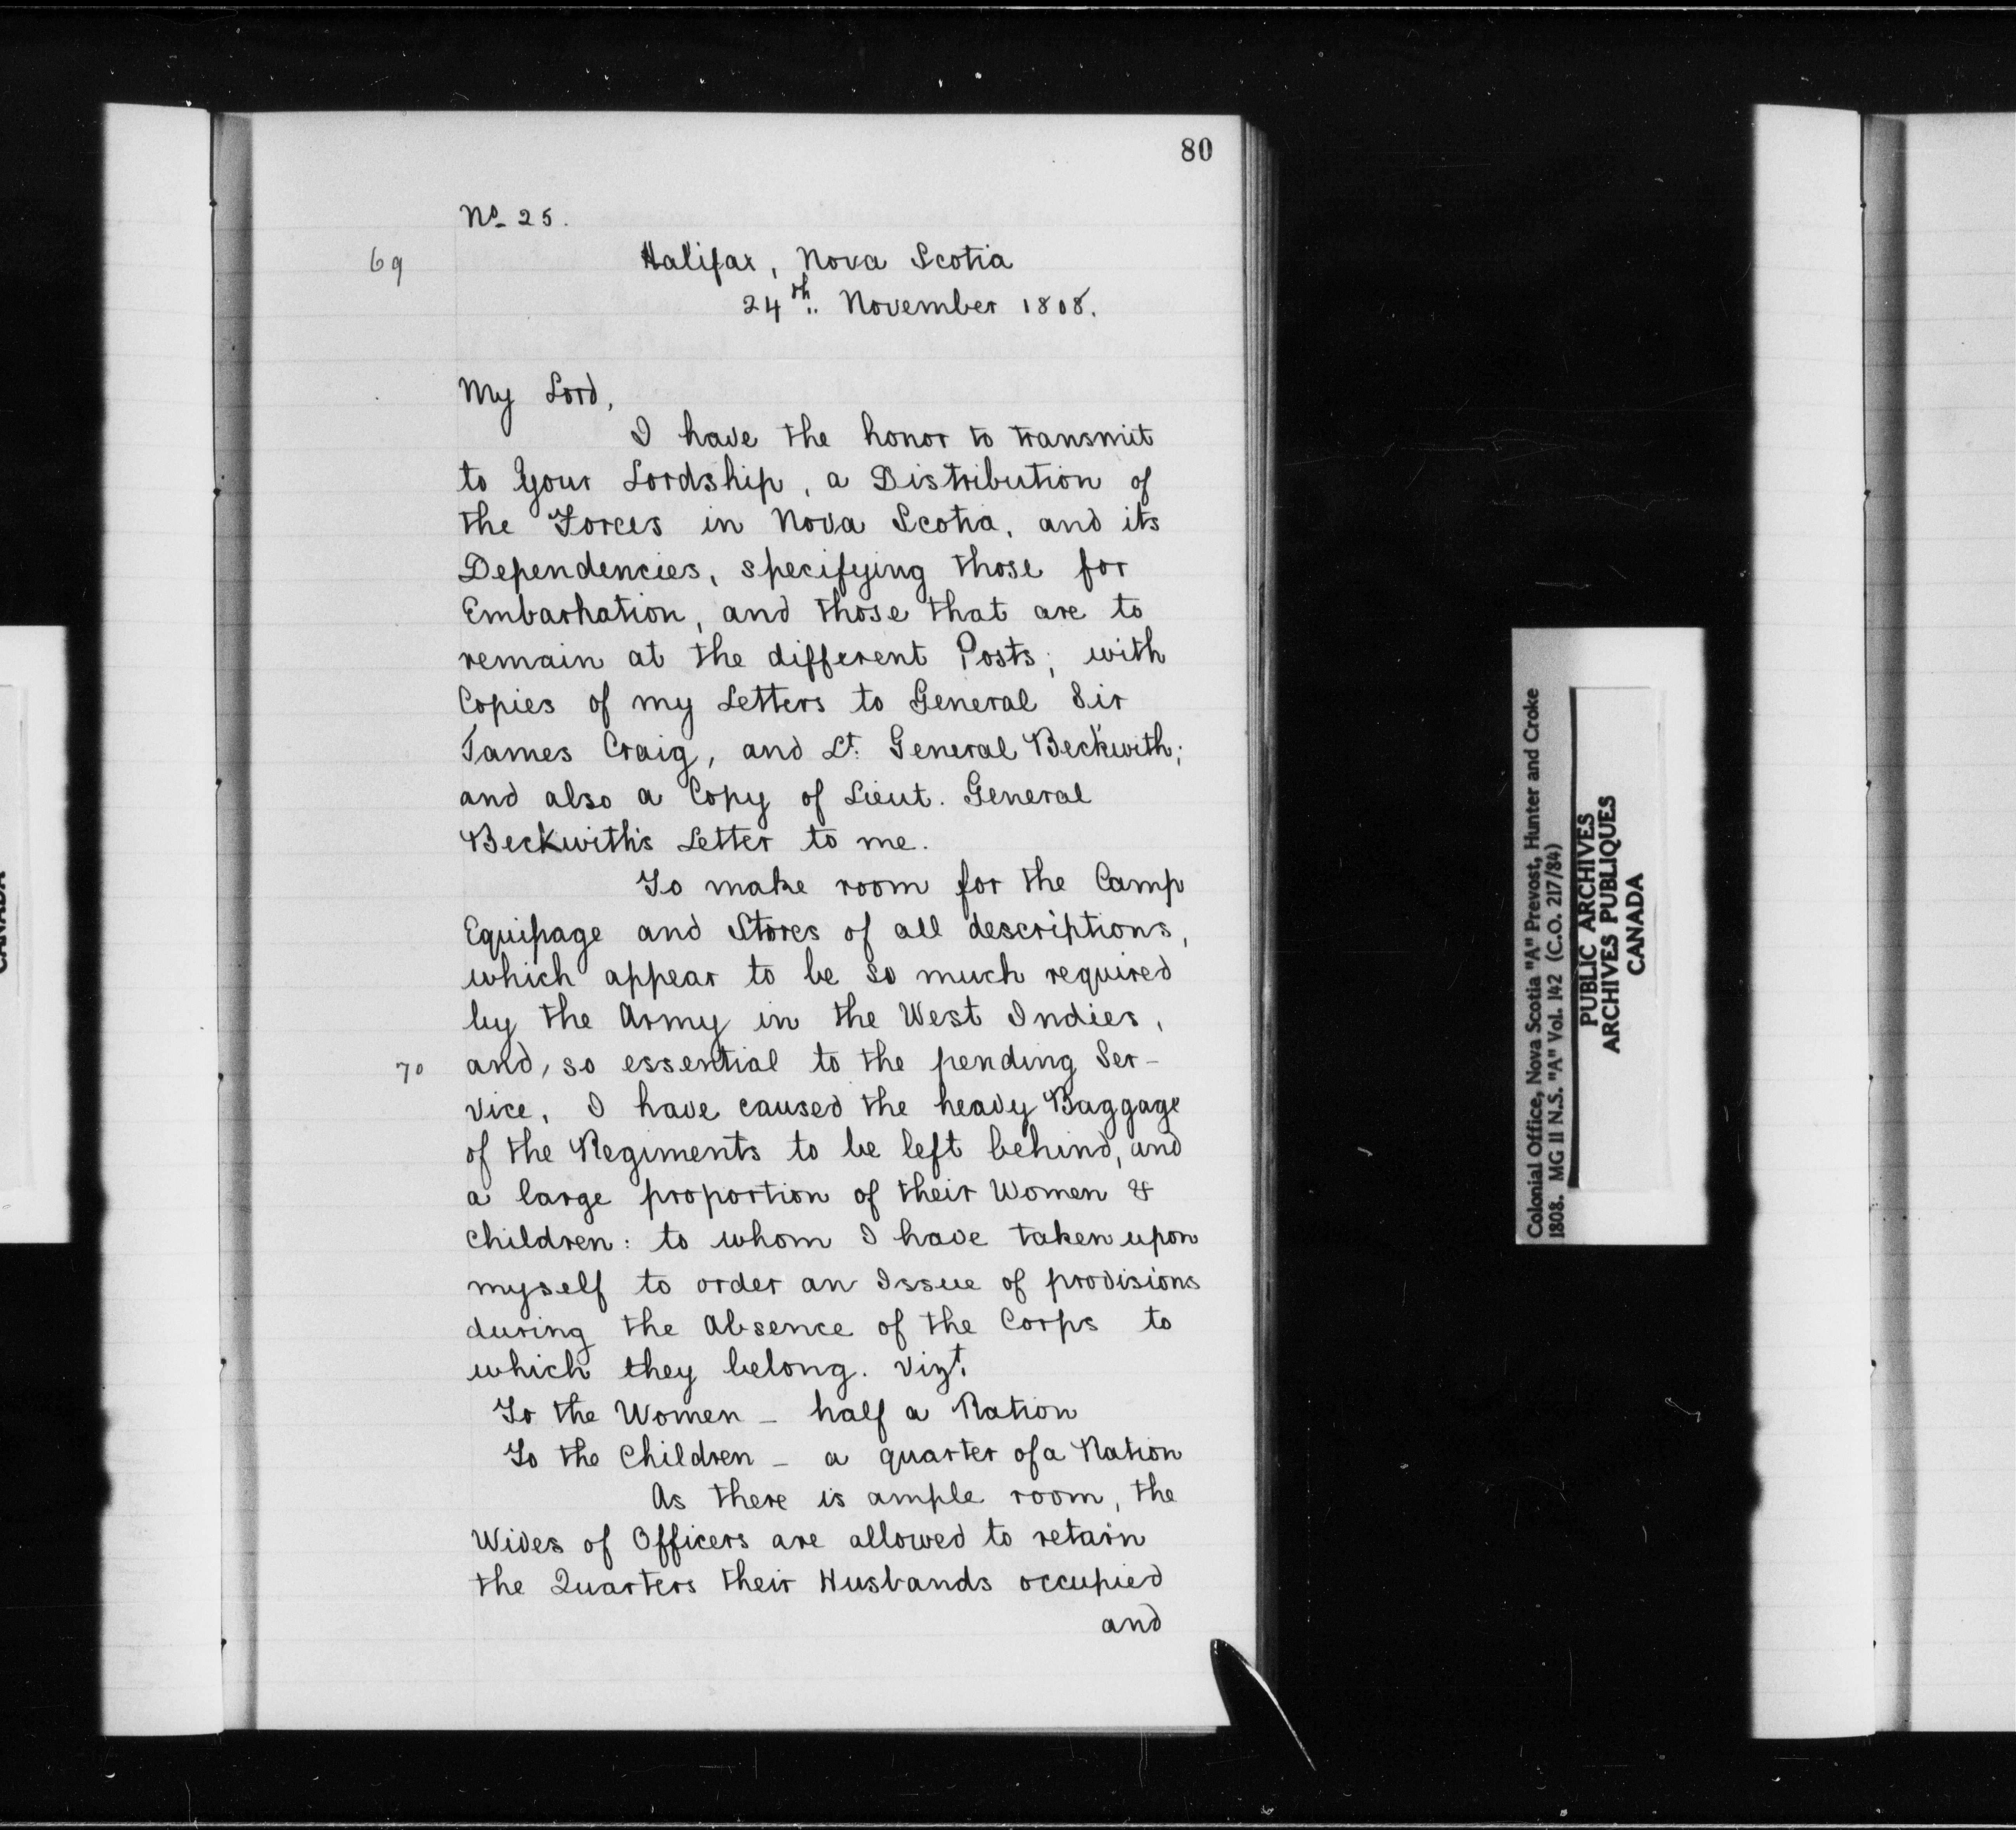 80
No 25.
69
Halifax, Nova Scotia
24th. November 1808.
My Lord,
I have the honor to transmit
to Your Lordship, a Distribution of
the Forces in Nova Scotia, and its
Dependencies, specifying those for
Embarkation, and those that are to
remain at the different Posts; with
Copies of my Letters to General Sir
James Craig, and Lt. General Beckwith;
and also a Copy of Lieut. General
Beckwith's Letter to me.
To make room for the Camp
Equipage and Stores of all descriptions,
which appear to be so much required
by the Army in the West Indies,
70
and, so essential to the pending Ser-
vice, I have caused the heavy Baggage
of the Regiments to be left behind, and
a large proportion of their Women &
Children: to whom I have taken upon
myself to order an Issue of provisions
during the Absence of the Corps to
which they belong. Vizt.
To the Women - half a Ration
To the Children - a quarter of a Ration
As there is ample room, the
Wives of Officers are allowed to retain
the Quarters their Husbands occupied
and
Colonial Office, Nova Scotia "A" Prevost, Hunter and Croke
1808. MG 11 N.S. "A" Vol. 142 (C.O. 217/84)
PUBLIC ARCHIVES
ARCHIVES PUBLIQUES
CANADA
CANADA